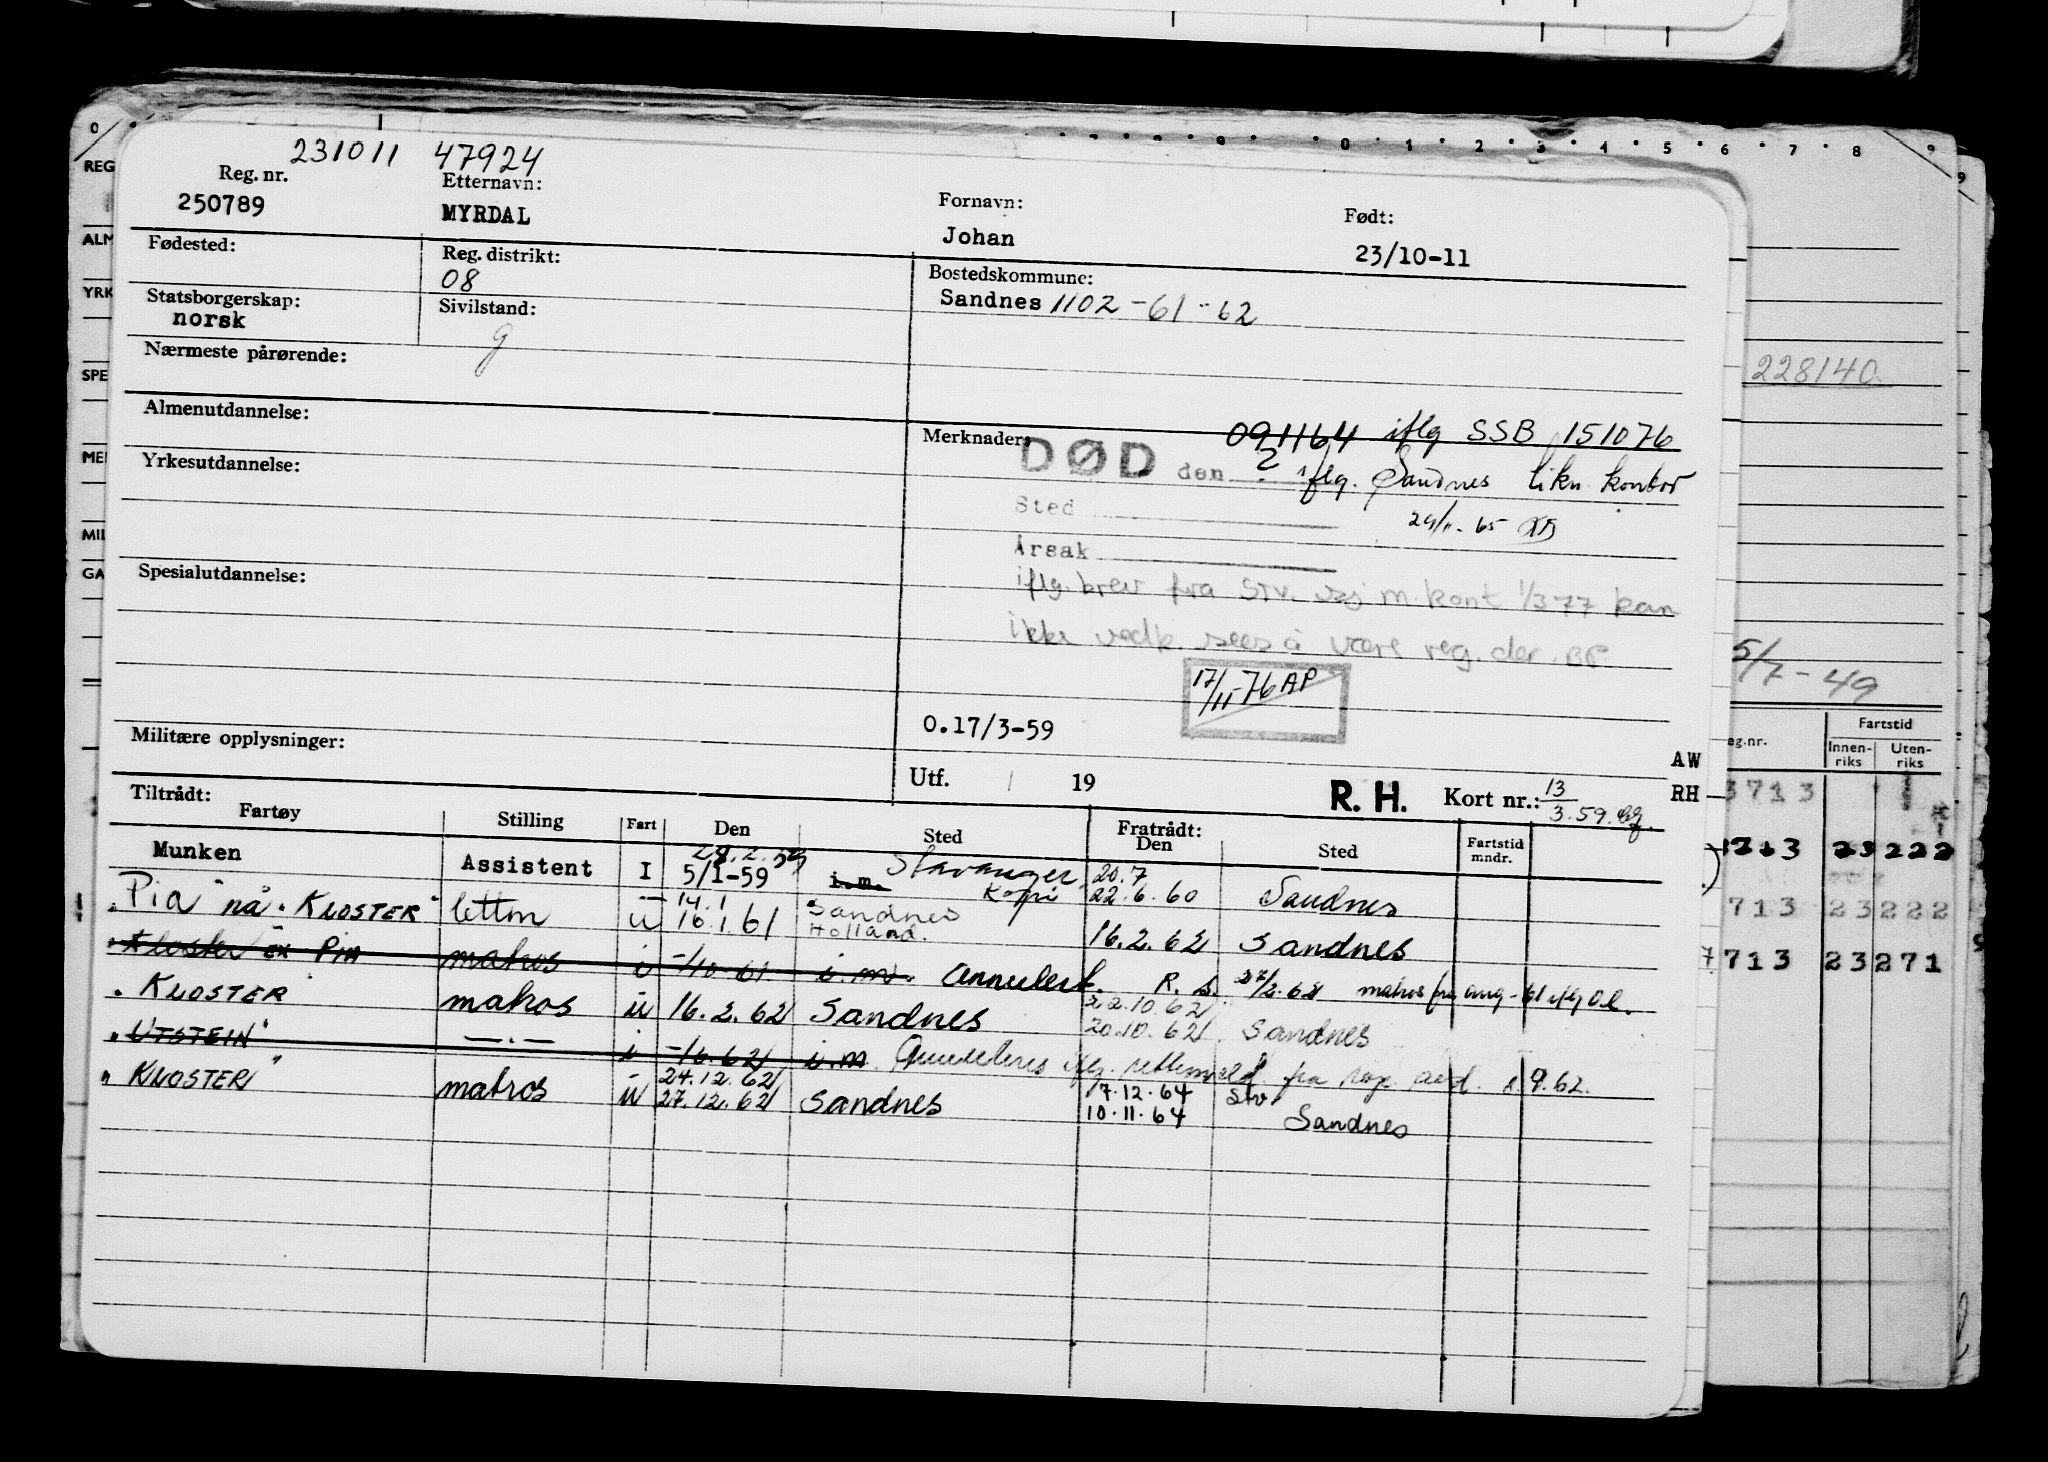 0 1 2 3 4 5 6 7 8 9
231011 47924
Reg. nr. Etternavn: Fornavn: Født:
250789 MYRDAL Johan 23/10-11
Fødested: Reg. distrikt: Bostedskommune:
08 Sandnes 1102-61-62
Statsborgerskap: Sivilstand:
norsk g
Nærmeste pårørende:
228140
Almenutdannelse: Merknader: 091164 iflg SSB 151076
DØD den ? iflg. Sandnes likn. kontor
Yrkesutdannelse:
Sted
Årsak
iflg. brev fra Stv. m. kont 1/3-77 kan
Spesialutdannelse:
ikke vedk. sees å være reg. der. BF.
5/7-49
17/11-76 AP
Militære opplysninger: O.17/3-59
AW
Utf. 19 R. H. Kort nr.: 13/3.59. RH
Tiltrådt: Fratrådt:
Fartøy Stilling Fart Den Sted Den Sted Fartstid mndr.
Munken Assistent I 28.2.59 5/1-59 i.m. Stavanger Kopi 20.7 22.6.60 Sandnes
"Pia" nå "KLOSTER" lettm u 14.1 16.1.61 Sandnes Holland. 16.2.62 Sandnes
"Kloster" ex PIA matros i -/10-61 i.m. Annullert. R.S. 27/2.62 matros fra aug -61 iflg
"KLOSTER matros u 16.2.62 Sandnes 22.10.62 20.10.62 Sandnes
"UTSTEIN" —.— i -/6.62 i.m Annulleres iflg. rettemeld. fra 9.62.
"KLOSTER" matros u 24.12.62 27.12.62 Sandnes 17.12.64 10.11.64 Stv Sandnes
REG
ALM
YRK
SPE
MEI
MIL
GA
eg.nr. Fartstid
Innen-riks Uten-riks
3713
713 23 222
713 23 271